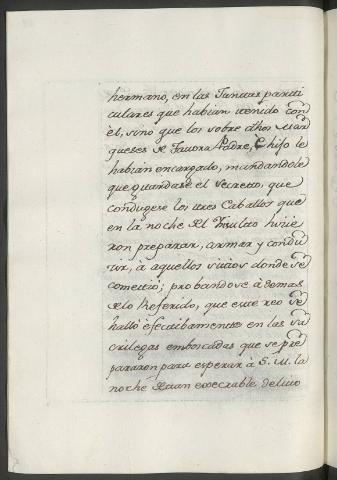 hermano, en las Juntas parti
culares que habian tenido con
èl, sino que los sobre dhos Mar
queses de Tavora Padre, è hijo le
habian encargado, mandandole
que guardase el secreto, que
condugese los tres Caballos que
en la noche del Insulto hicie
ron preparar, armar y condu
cir, à aquellos sitios donde se
cometiò; probandose à demas
de lo Referido, que este reo se
hallò efectibamente en las sa
crilegas emboscadas que se pre
pararon para esperar à S. M. la
noche de tan execrable delito